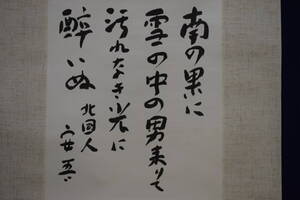 南の果に
雪の中の男来りて
汚れなき光に
酔いぬ
北国人